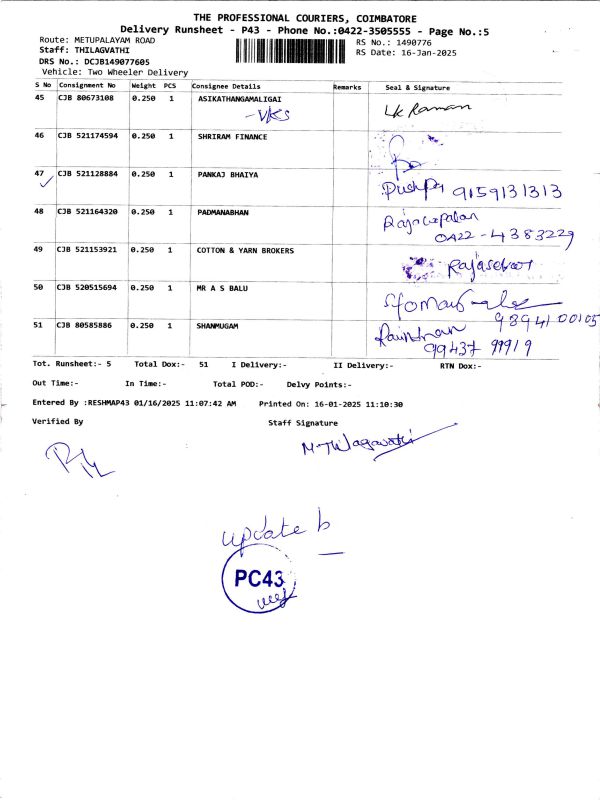 THE PROFESSIONAL COURIERS, COIMBATORE
Delivery Runsheet - P43 - Phone No.:0422-3505555 - Page No.:5
Route: METUPALAYAM ROAD RS No.: 1490776
Staff: THILAGVATHI RS Date: 16-Jan-2025
DRS No.: DCJB149077605
Vehicle: Two Wheeler Delivery
S No Consignment No Weight PCS Consignee Details Remarks Seal & Signature
45 CJB 80673108 0.250 1 ASIKATHANGAMALIGAI
-VKS LK Raman
46 CJB 521174594 0.250 1 SHRIRAM FINANCE
47 CJB 521128884 0.250 1 PANKAJ BHAIYA
9159131313
48 CJB 521164320 0.250 1 PADMANABHAN
Rajagopalan
0422-4383229
49 CJB 521153921 0.250 1 COTTON & YARN BROKERS
50 CJB 520515694 0.250 1 MR A S BALU
98941 00105
51 CJB 80585886 0.250 1 SHANMUGAM
99437 99919
Tot. Runsheet:- 5 Total Dox:- 51 I Delivery:- II Delivery:- RTN Dox:-
Out Time:- In Time:- Total POD:- Delvy Points:-
Entered By :RESHMAP43 01/16/2025 11:07:42 AM Printed On: 16-01-2025 11:10:30
Verified By Staff Signature
M-Thilagavathi
update b
PC43